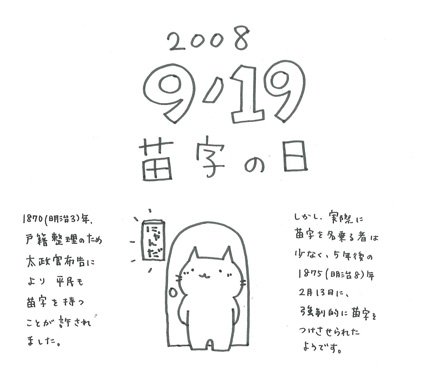 2008
9/19
苗字の日
1870(明治3)年、
戸籍整理のため
太政官布告に
より 平民も
苗字を持つ
ことが許され
ました。
にゃんだ
しかし、実際に
苗字を名乗る者は
少なく、5年後の
1875(明治8)年
2月13日に、
強制的に苗字を
つけさせられた
ようです。